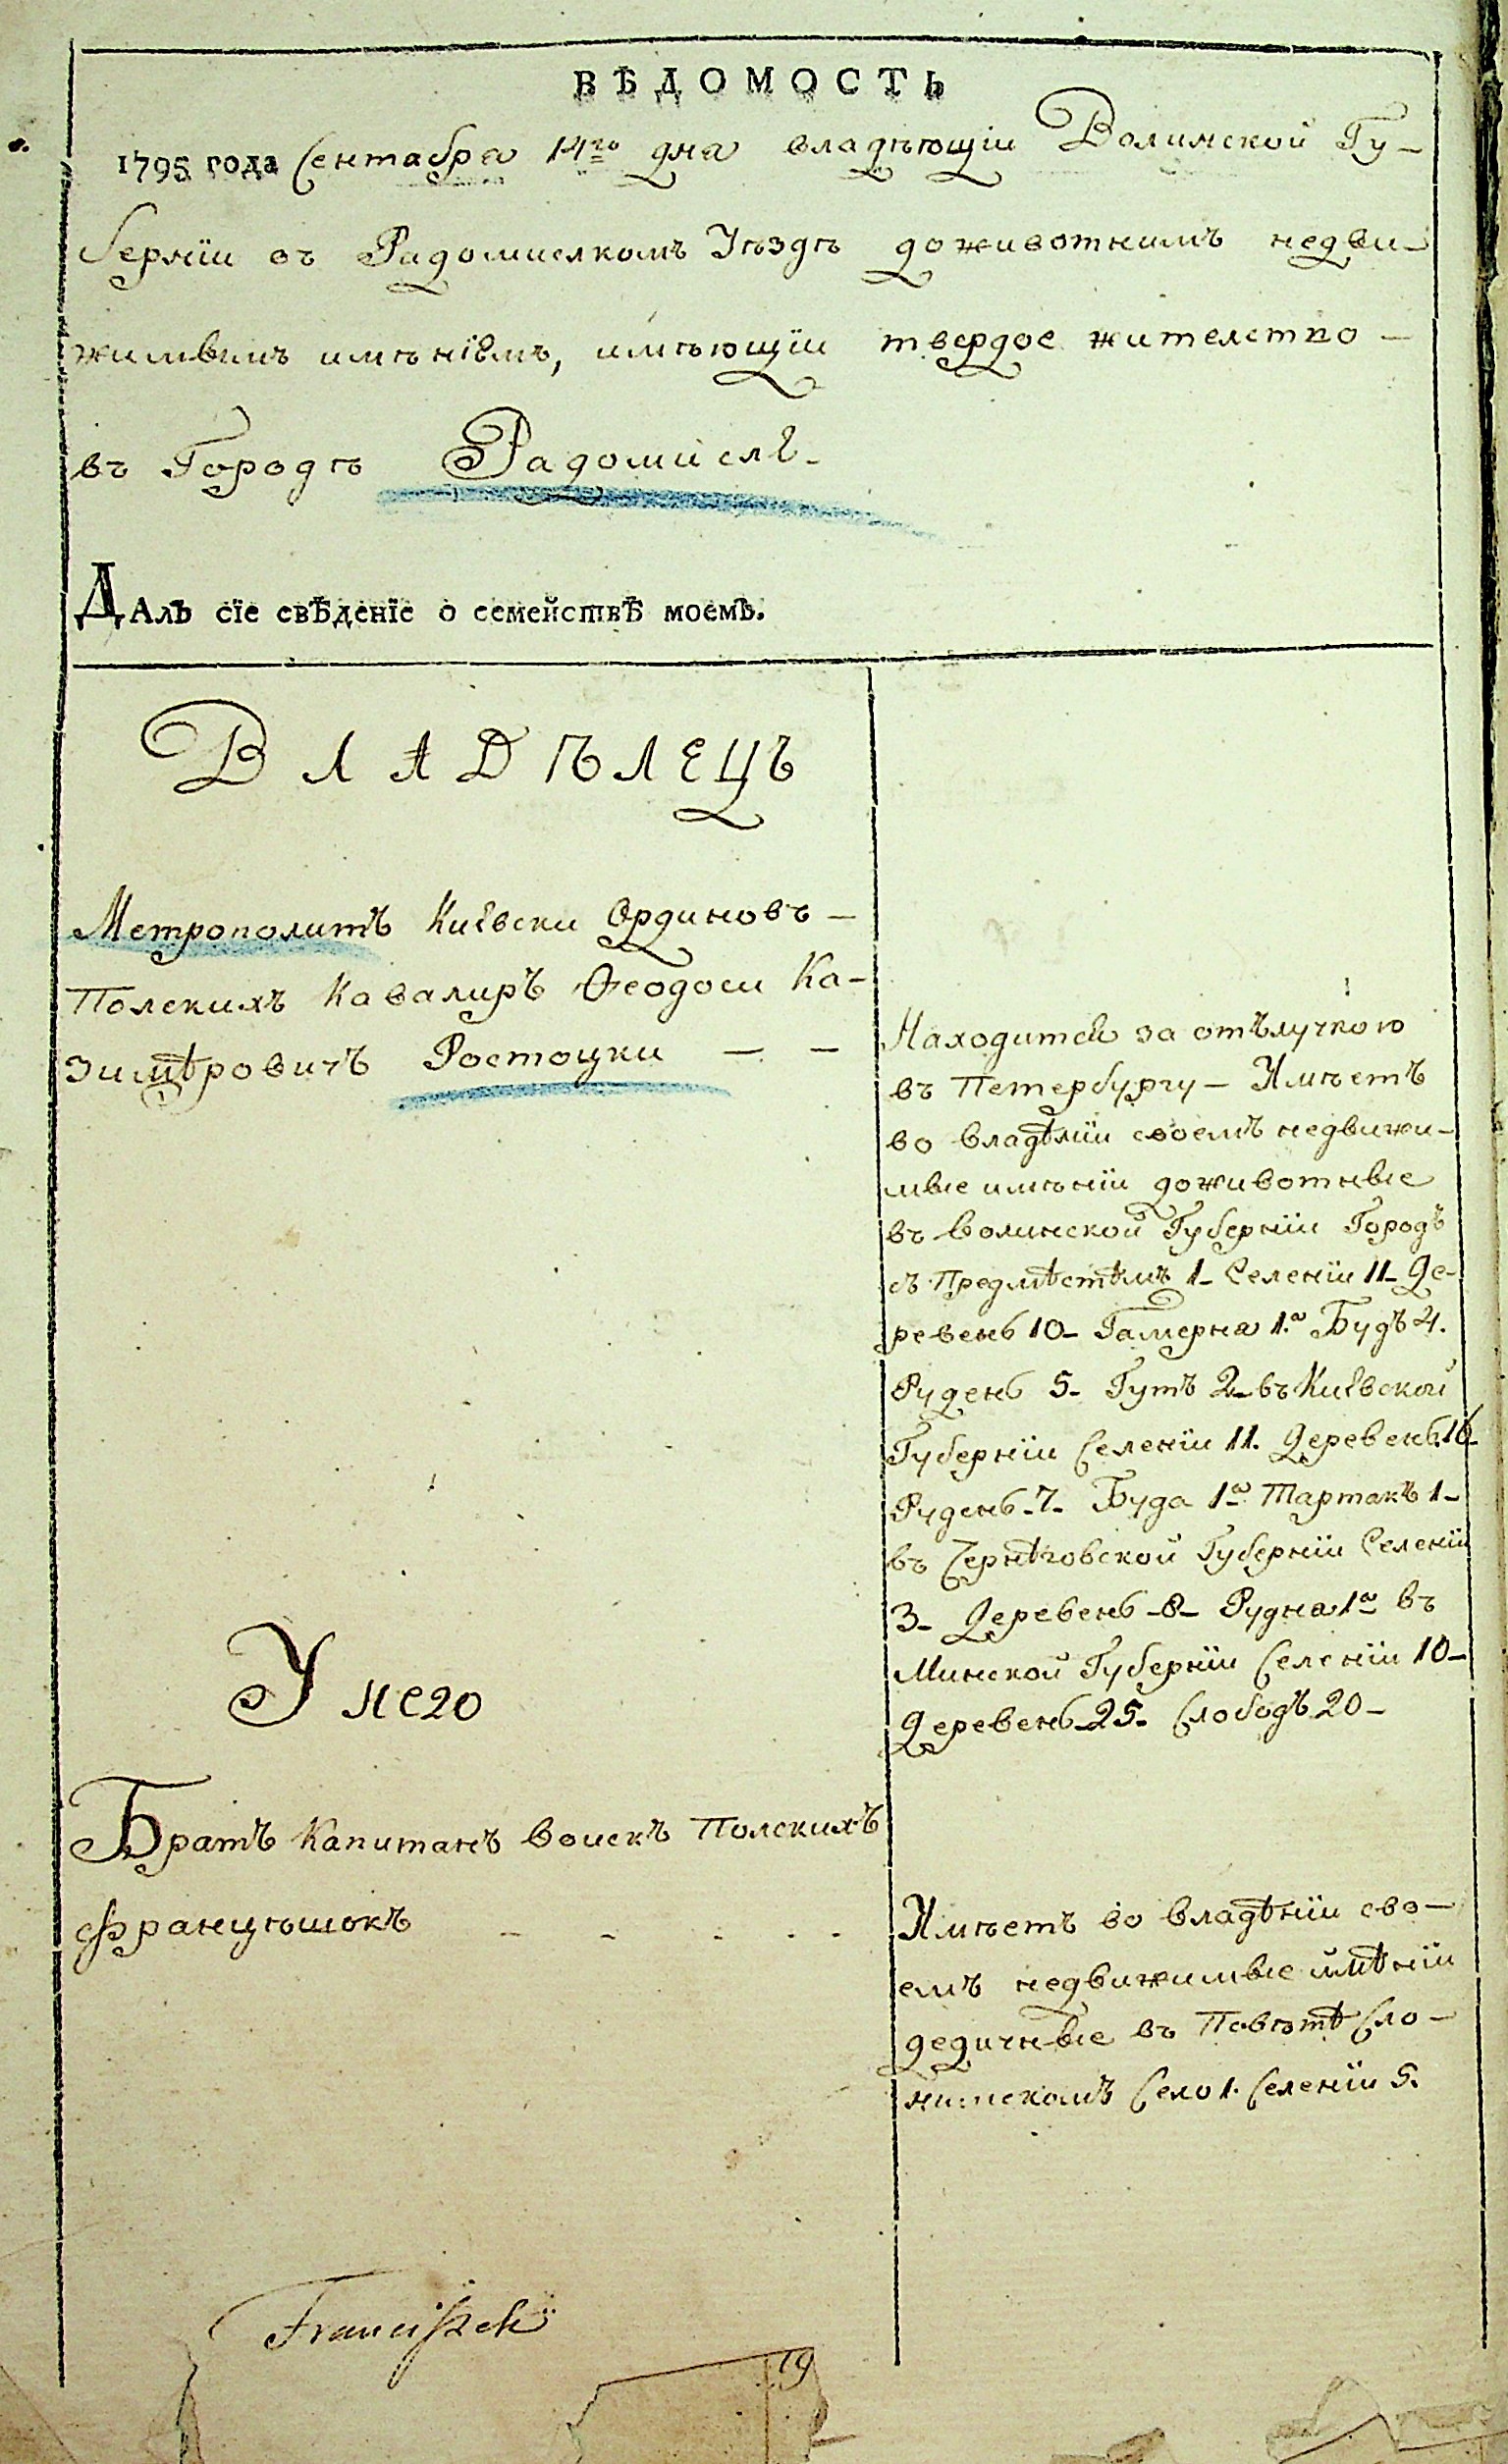 ВѢДОМОСТЬ
1795 года Сентабра 14го дна владѣющіи Волинской Гу-
берніи въ Радомислкомъ Уѣздѣ доживотнимъ недви-
жимымъ имѣніемъ, имѣющіи твердое жителство -
въ Городѣ Радомислѣ-
Далъ сїе свѣденїе о семействѣ моемъ.
ВЛАДѢЛЕЦЪ
Метрополитъ Киевски Ординовъ -
Полскихъ Кавалиръ Феодоси Ка-
зимѣровичъ Ростоцки - -
Находится за отълучкою
въ Петербургу - Имѣетъ
во владѣніи своемъ недвижи-
мые имѣніи доживотные
въ Волинской Губерніи Городъ
съ Предмѣстѣмъ 1- Селеніи 11- Де-
ревень 10- Гамерна 1.а Будъ 4.
Рудень 5- Гутъ 2- въ Киевской
Губерніи Селеніи 11. Деревень 16-
Рудень 7- Буда 1а Тартакъ 1-
въ Чернѣговской Губерніи Селеніи
3- Деревень -8- Рудна 1а въ
Минской Губерніи Селеніи 10-
Деревень 25- Слободъ 20-
У него
Братъ Капитанъ Воискъ Полскихъ
Францѣшокъ - - - - -
Имѣетъ во владѣніи сво-
емъ недвижимые имѣніи
дедичные въ Повѣтѣ Сло-
нимскомъ Село 1. Селеніи 5.
Franciszek
19